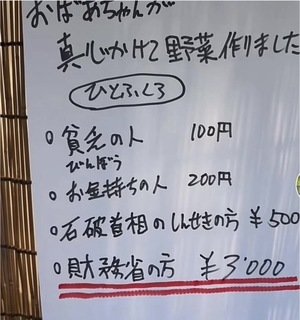 おばあちゃんが
真心かけて野菜作りました
ひとふくろ
○貧乏の人 100円
びんぼう
○お金持ちの人 200円
○石破首相のしんせきの方 ¥500
○財務省の方 ¥3'000